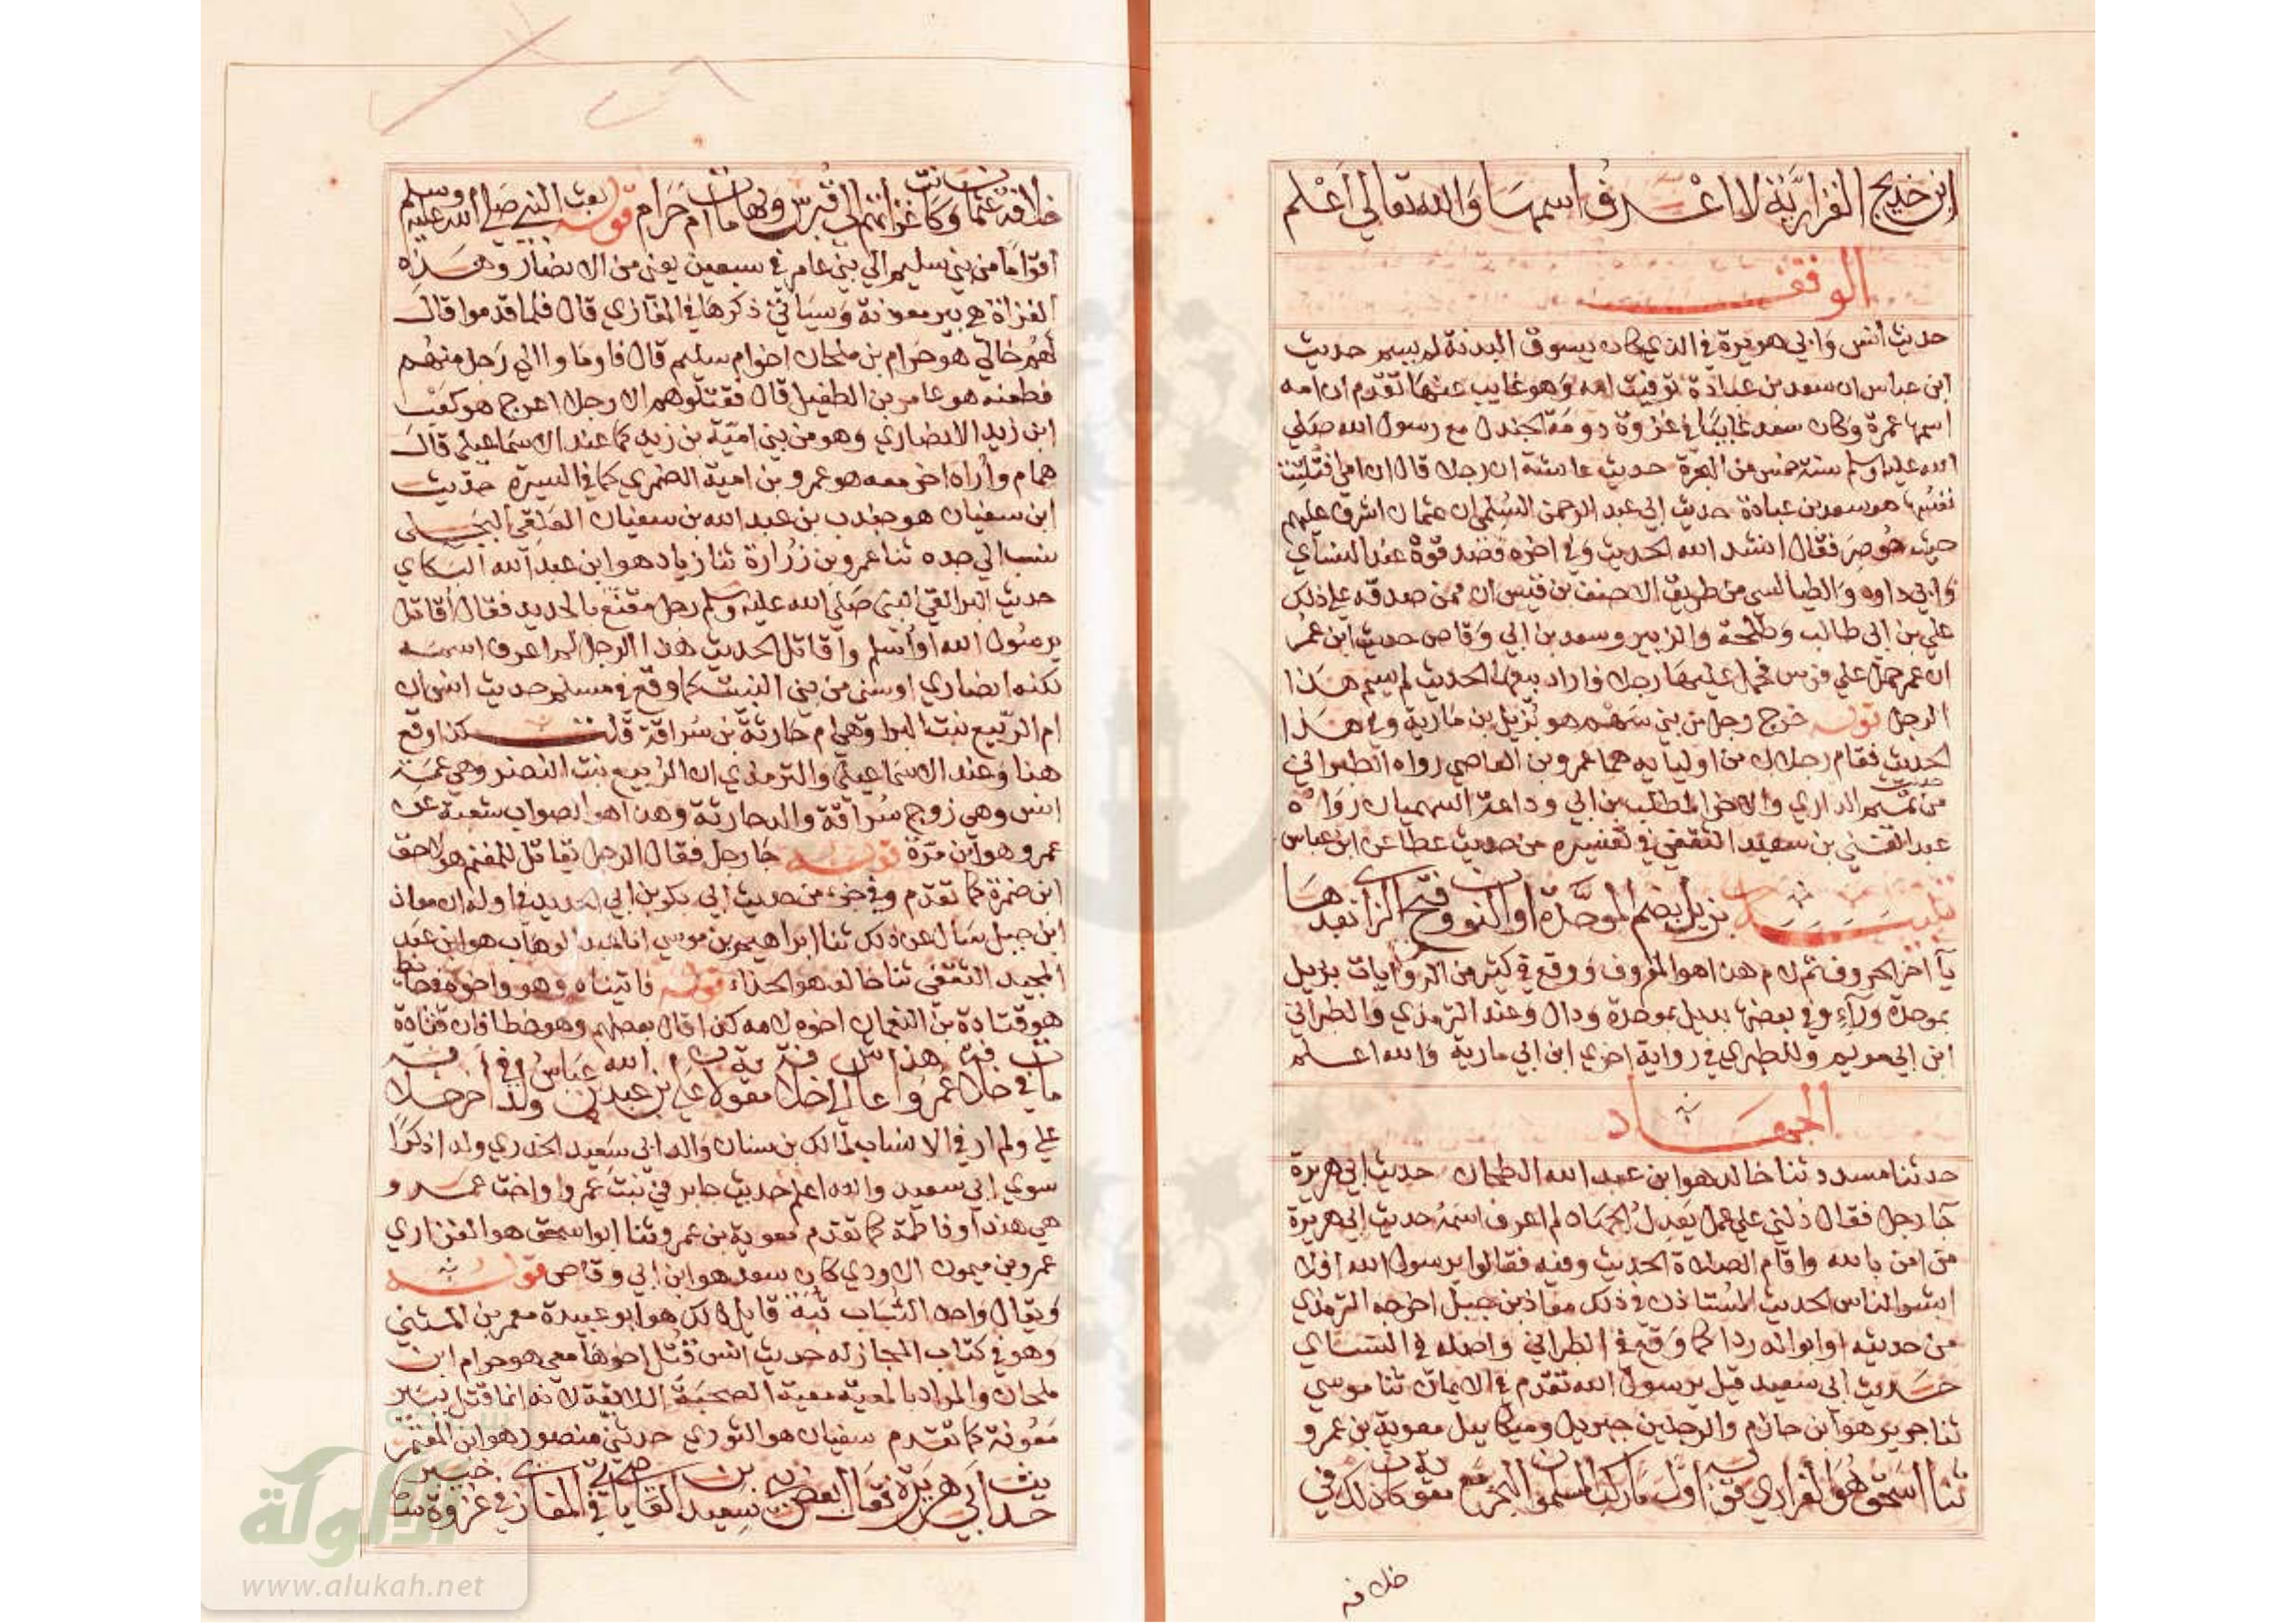 ابن خديج الفزارية لا اعرف اسمها والله تعالي اعلم
الوقف
حديث انس وابي هريرة في الذي كان يسوق البدنة لم يسم حديث
ابن عباس ان سعد بن عبادة توفيت امه وهو غايب عنها تقدم ان امه
اسمها عمرة وكان سعد غايبا في غزوة دومة الجندل مع رسول الله صلي
الله عليه وسلم سنة خمس من الهجرة حديث عايشة ان رجلا قال ان امي افتلتت
نفسها هو سعد بن عبادة حديث ابي عبد الرحمن السلمي ان عثمان اشرف عليهم
حيث حوصر فقال انشد الله الحديث وفي اخره فصدقوه عند النساي
وابي داود والطيالسي من طريق الاحنف بن قيس ان ممن صدقه علي ذلك
علي بن ابي طالب وطلحة والزبير وسعد بن ابي وقاص حديث ابن عمر
ان عمر حمل علي فرس فحمل عليها رجلا فاراد بيعها الحديث لم يسم هذا
الرجل قوله خرج رجل من بني سهم هو بزيل بن مارية وفي هذا
الحديث فقام رجلان من اوليايه هما عمرو بن العاصي رواه الطبراني
من حديث تميم الداري والاخر المطلب بن ابي وداعة السهميان رواه
عبد الغني بن سعيد الثقفي في تفسيره من حديث عطا عن ابن عباس
تنبيه بزيل بضم الموحدة او النون وفتح الزا بعدها
يآ اخر الحروف ثم لام هذا هو المعروف ووقع في كثير من الروايات بريل
بموحدة ورآء وفي بعضها بديل بموحدة ودال وعند الترمذي والطبراني
ابن ابي مريم وللطبري في رواية اخري ابن ابي مارية والله اعلم
الجهاد
حدثنا مسدد ثنا خالد هو ابن عبد الله الطحان حديث ابي هريرة
جا رجل فقال دلني علي عمل يعدل الجهاد لم اعرف اسمه حديث ابي هريرة
من امن بالله واقام الصلاة الحديث وفيه فقالوا يرسول الله افلا
ابشر الناس الحديث المستاذن في ذلك معاذ بن جبل اخرجه الترمذي
من حديثه او ابو الدردا كما وقع في الطبراني واصله في النساي
حديث ابي سعيد قيل يرسول الله تقدم في الايمان ثنا موسي
ثنا جرير هو ابن حازم والرجلين جبريل وميكاييل معوية بن عمرو
ثنا ابو اسحق هو الفزاري قوله اول ما ركب المسلمون البحر مع معوية كان ذلك في
خلافة
خلافة عثمان وكانت غزاتهم الي قبرس وبها ماتت ام حرام قوله بعث النبي صلي الله عليه وسلم
اقواما من بني سليم الي بني عامر في سبعين يعني من الانصار وهذه
الغزاة هي بير معونة وسياتي ذكرها في المغازي قال فلما قدموا قال
لهم خالي هو حرام بن ملحان اخو ام سليم قال فاوماوا الي رجل منهم
فطعنه هو عامر بن الطفيل قال فقتلوهم الا رجلا اعرج هو كعب
ابن زيد الانصاري وهو من بني امية بن زيد كما عند الاسماعيلي قال
همام واراه اخر معه هو عمرو بن امية الضمري كما في السيرة حديث
ابن سفيان هو جندب بن عبد الله بن سفيان العلقي البجلي
نسب الي جده ثنا عمرو بن زرارة ثنا زياد هو ابن عبد الله البكاي
حديث البرا اتي النبي صلي الله عليه وسلم رجل مقنع بالحديد فقال اقاتل
يرسول الله او اسلم واقاتل الحديث هذا الرجل لم اعرف اسمه
لكنه انصاري اوسي من بني النبيت كما وقع في مسلم حديث انس ان
ام الربيع بنت البرا وهي ام حارثة بن سراقة قلت كذا وقع
هنا وعند الاسماعيلي والترمذي ان الربيع بنت النضر وهي عمة
انس وهي زوج سراقة والد حارثة وهذا هو الصواب شعبة عن
عمرو هو ابن مرة قوله جا رجل فقال الرجل يقاتل للمغنم هو لاحق
ابن ضمرة كما تقدم وفي جزء من حديث ابي بكر بن ابي الحديد في اوله ان معاذ
ابن جبل سال عن ذلك ثنا ابراهيم بن موسي انا عبد الوهاب هو ابن عبد
المجيد الثقفي ثنا خالد هو الحذاء قوله فاتيناه وهو واخوه في حايط
هو قتادة بن النعمان اخوه لامه كذا قال بعضهم وهو خطا فان قتادة
علي ولم ار في الانساب لمالك بن سنان والد ابي سعيد الخدري ولدا ذكرا
سوي ابي سعيد والله اعلم حديث جابر في بنت عمرو او اخت عمرو
هي هند او فاطمة كما تقدم معوية بن عمرو ثنا ابو اسحق هو الفزاري
عمرو بن ميمون الاودي كان سعد هو ابن ابي وقاص قوله
ويقال واحد الثبات ثبة قايل ذلك هو ابو عبيدة معمر بن المثني
وهو في كتاب المجاز له حديث انس قتل اخوها معي هو حرام ابن
ملحان والمراد بالمعية معية الصحبة اللايقة لانه انما قتل ببير
معونة كما تقدم سفيان هو الثوري حدثني منصور هو ابن المعتمر
حديث ابي هريرة فقال بعض بني سعيد بن العاصي ياتي في المغازي في غزوة خيبر
الألوكة
www.alukah.net